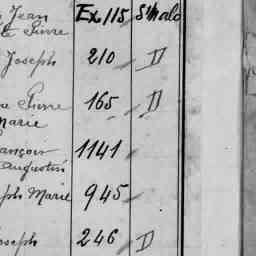 Jean Ex 115 St Malo
Pierre
Joseph 210 D
Pierre 165 D
Marie
ançois 1141
Augustin
ph Marie 945
oseph 246 D